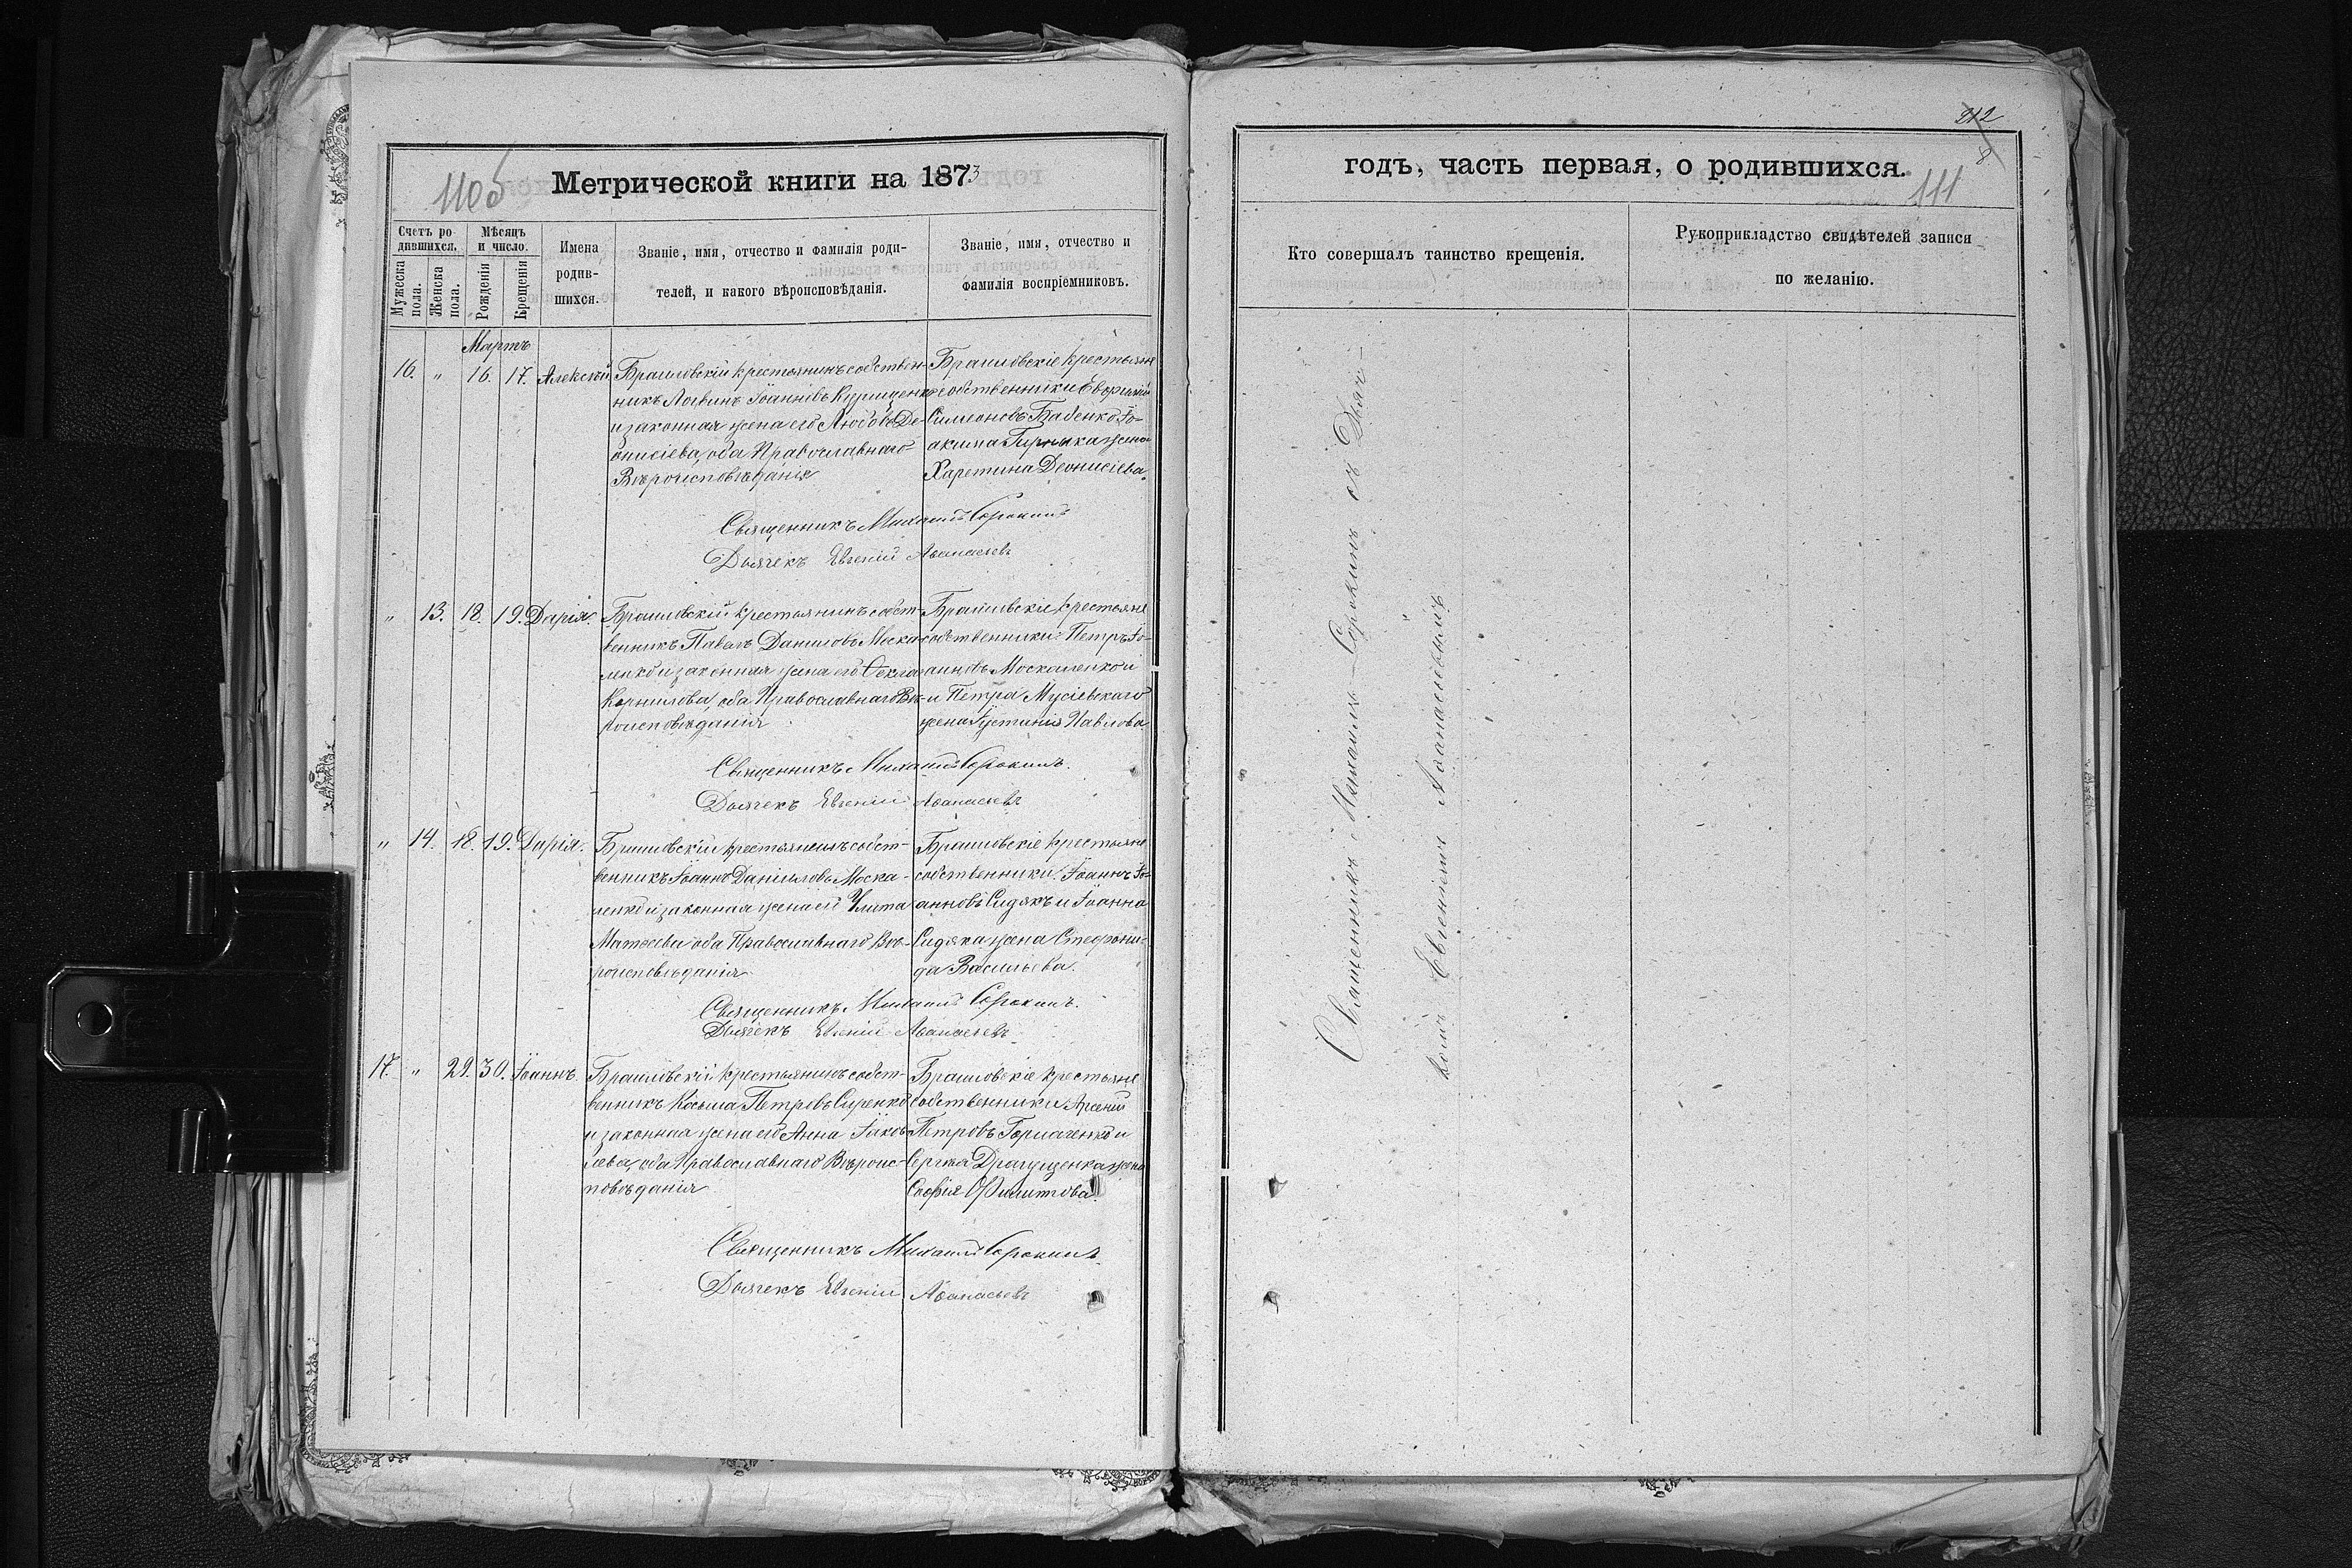 110б
Метрической книги на 1873
Счетъ ро
дившихся.
Мѣсяцъ
и число.
Имена
родив-
шихся.
Званіе, имя, отчество и фамилія роди-
телей, и какого вѣроисповѣданія.
Званіе, имя, отчество и
фамилія воспріемниковъ.
Мужеска
пола.
Женска
пола.
Рожденія
Крещенія
Мартъ
16. " 16. 17. Алексѣй
Браиловскій крестьянинъ собствен-
никъ Логвинъ Іоанновъ
и законная жена его Любовь Де-
онисіева, оба Православнаго
Вѣроисповѣданія
Браиловскіе крестьяне
собственники
Симеоновъ Бабенко Іо-
акима жена
Харетина Деонисіева.
Священникъ Михаилъ Сорокинъ
Дьячекъ Евгеній Аѳанасьевъ
" 13. 18. 19. Дарія.
Браиловскій крестьянинъ собст-
венникъ Павелъ Даниловъ Моска-
ленко и законная жена его Ѳекла
Корнилова, оба Православнаго Вѣ-
роисповѣданія
Браиловскіе крестьяне
собственники: Петръ Іо-
анновъ Москаленко и
и Петра Мусіевскаго
жена Іустинія Павлова
Священникъ Михаилъ Сорокинъ.
Дьячекъ Евгеній Аѳанасьевъ
" 14. 18. 19. Дарія.
Браиловскій крестьянинъ собст-
венникъ Іоаннъ Даниловъ Моска-
ленко и законная жена его Улита
Матѳеева оба Православнаго Вѣ-
роисповѣданія
Браиловскіе крестьяне
собственники: Іоаннъ Іо-
анновъ Сидякъ и Іоанна
Сидяка жена Стефани-
да Васильева.
Священникъ Михаилъ Сорокинъ.
Дьячекъ Евгеній Аѳанасьевъ
17. " 29. 30. Іоаннъ.
Браиловскій крестьянинъ собст-
венникъ Косьма Петровъ Сиренко
и законная жена его Анна Іаков-
лева, оба Православнаго Вѣроис-
повѣданія
Браиловскіе крестьяне
собственники Арсеній
Петровъ и
Сергѣя жена
Софія Филипова.
Священникъ Михаилъ Сорокинъ.
Дьячекъ Евгеній Аѳанасьевъ
212
8
годъ, часть первая, о родившихся.
111
Кто совершалъ таинство крещенія.
Рукоприкладство свидѣтелей записи
по желанію.
Священникъ Михаилъ Сорокинъ съ Дьяч-
комъ Евгеніемъ Аѳанасьевымъ